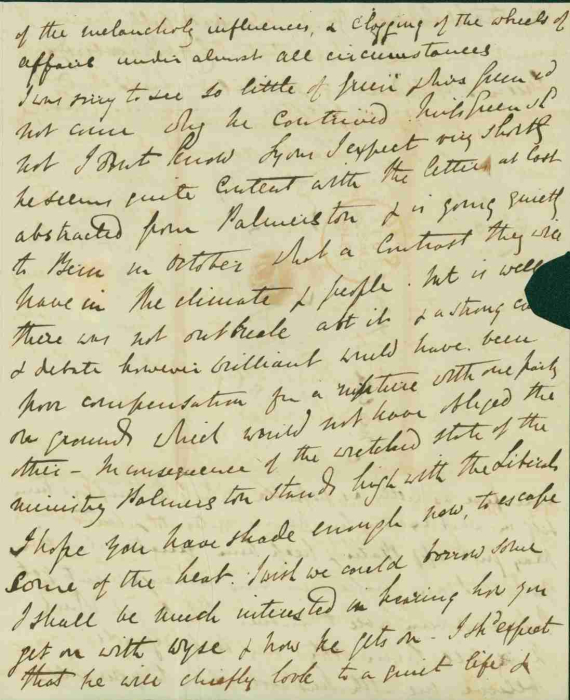 of the melancholy influences, & clogging of the wheels of
affairs under almost all circumstances
I was sorry to see so little of Green
not come why he contrived
not I dont know Lyons I expect very shortly
he seems quite content with the letter at last
abstracted from Palmerston & is going quietly
to Bern in October what a contrast they will
have in the climate & people. but is well
there was not outbreak abt it & a strong
& debate however brilliant would have been
poor compensation for a rupture with one party
on grounds which would not have obliged the
other - In consequence of the wretched state of the
ministry Palmerston stands high with the Liberals
I hope you have shade enough now, to escape
some of the heat. I wish we could borrow some
I shall be much interested in hearing how you
get on with Wyse & how he gets on - I shd expect
that he will chiefly look to a quiet life &